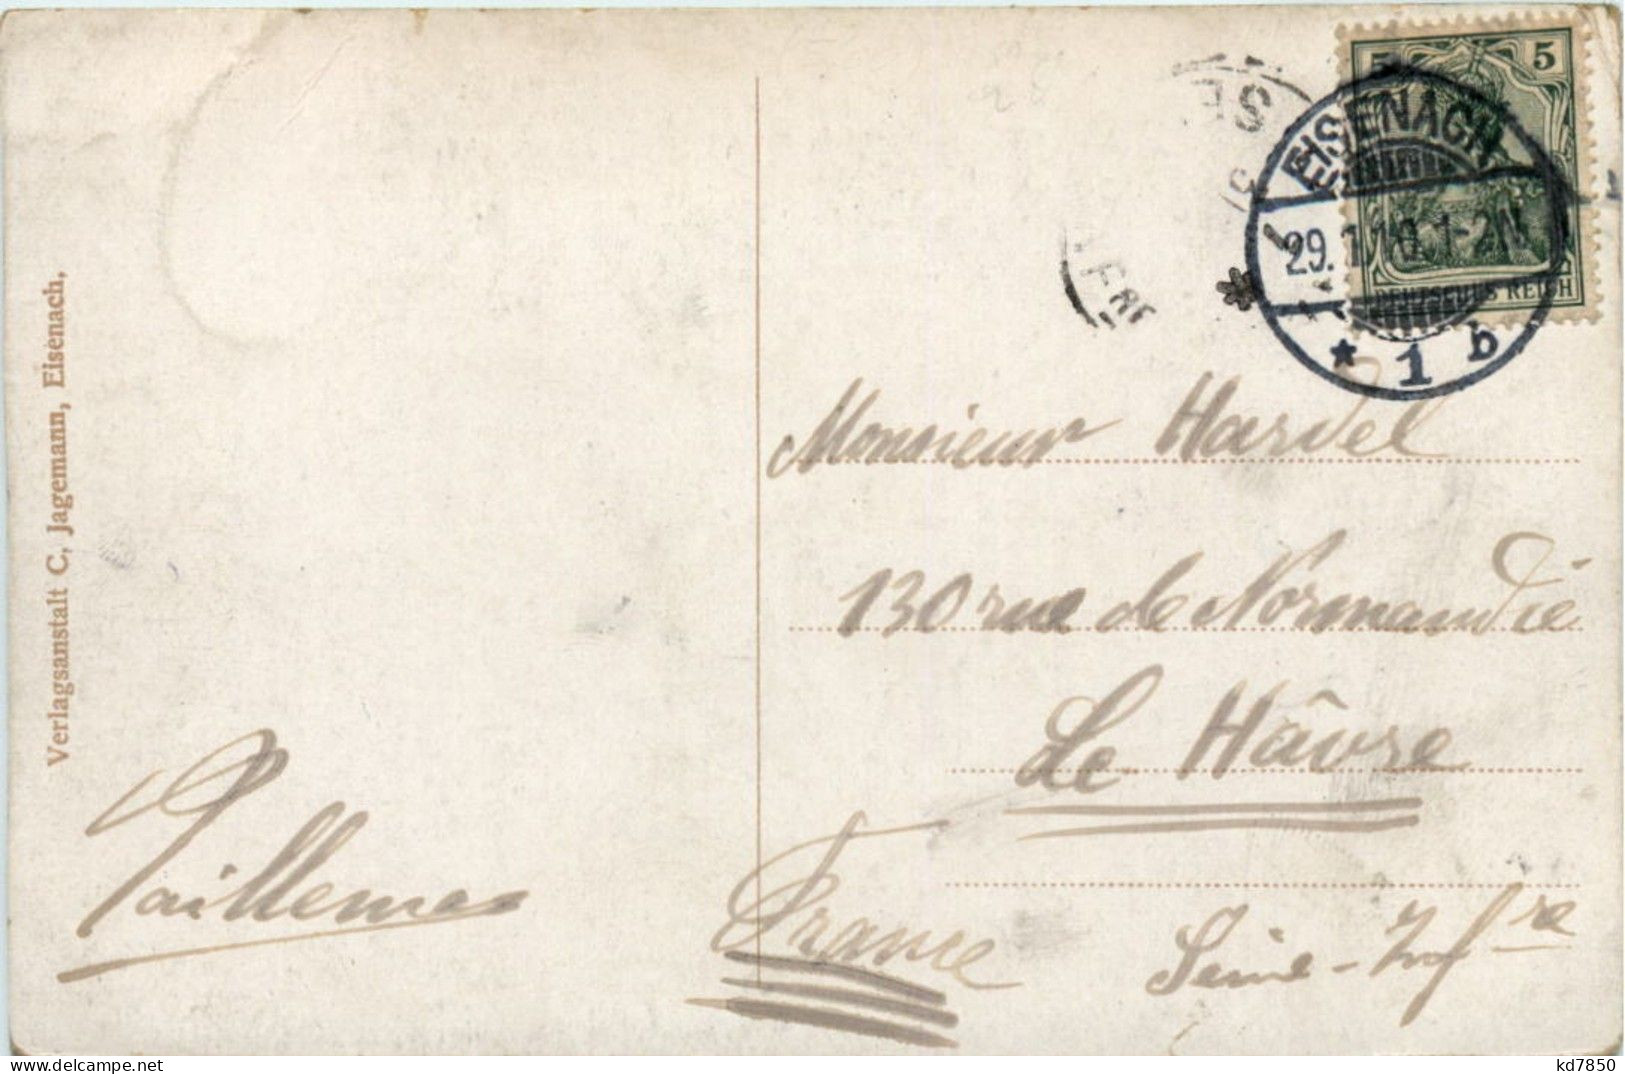 Verlagsanstalt C, Jagemann, Eisenach.
5 5
DEUTSCHES REICH
EISENACH
29.1.10.1-2N
* 1 b
Monsieur Hardel
130 rue de Normandie
Le Hâvre
France
Seine-Infre
Taillemes
delcampe.net
kd7850